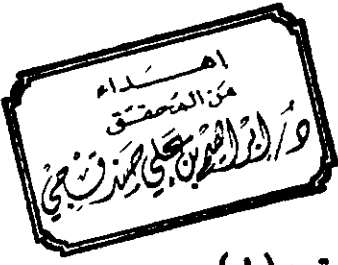 اهـــداء
من المحقق
د/ ابراهيم بن علي صندقجي